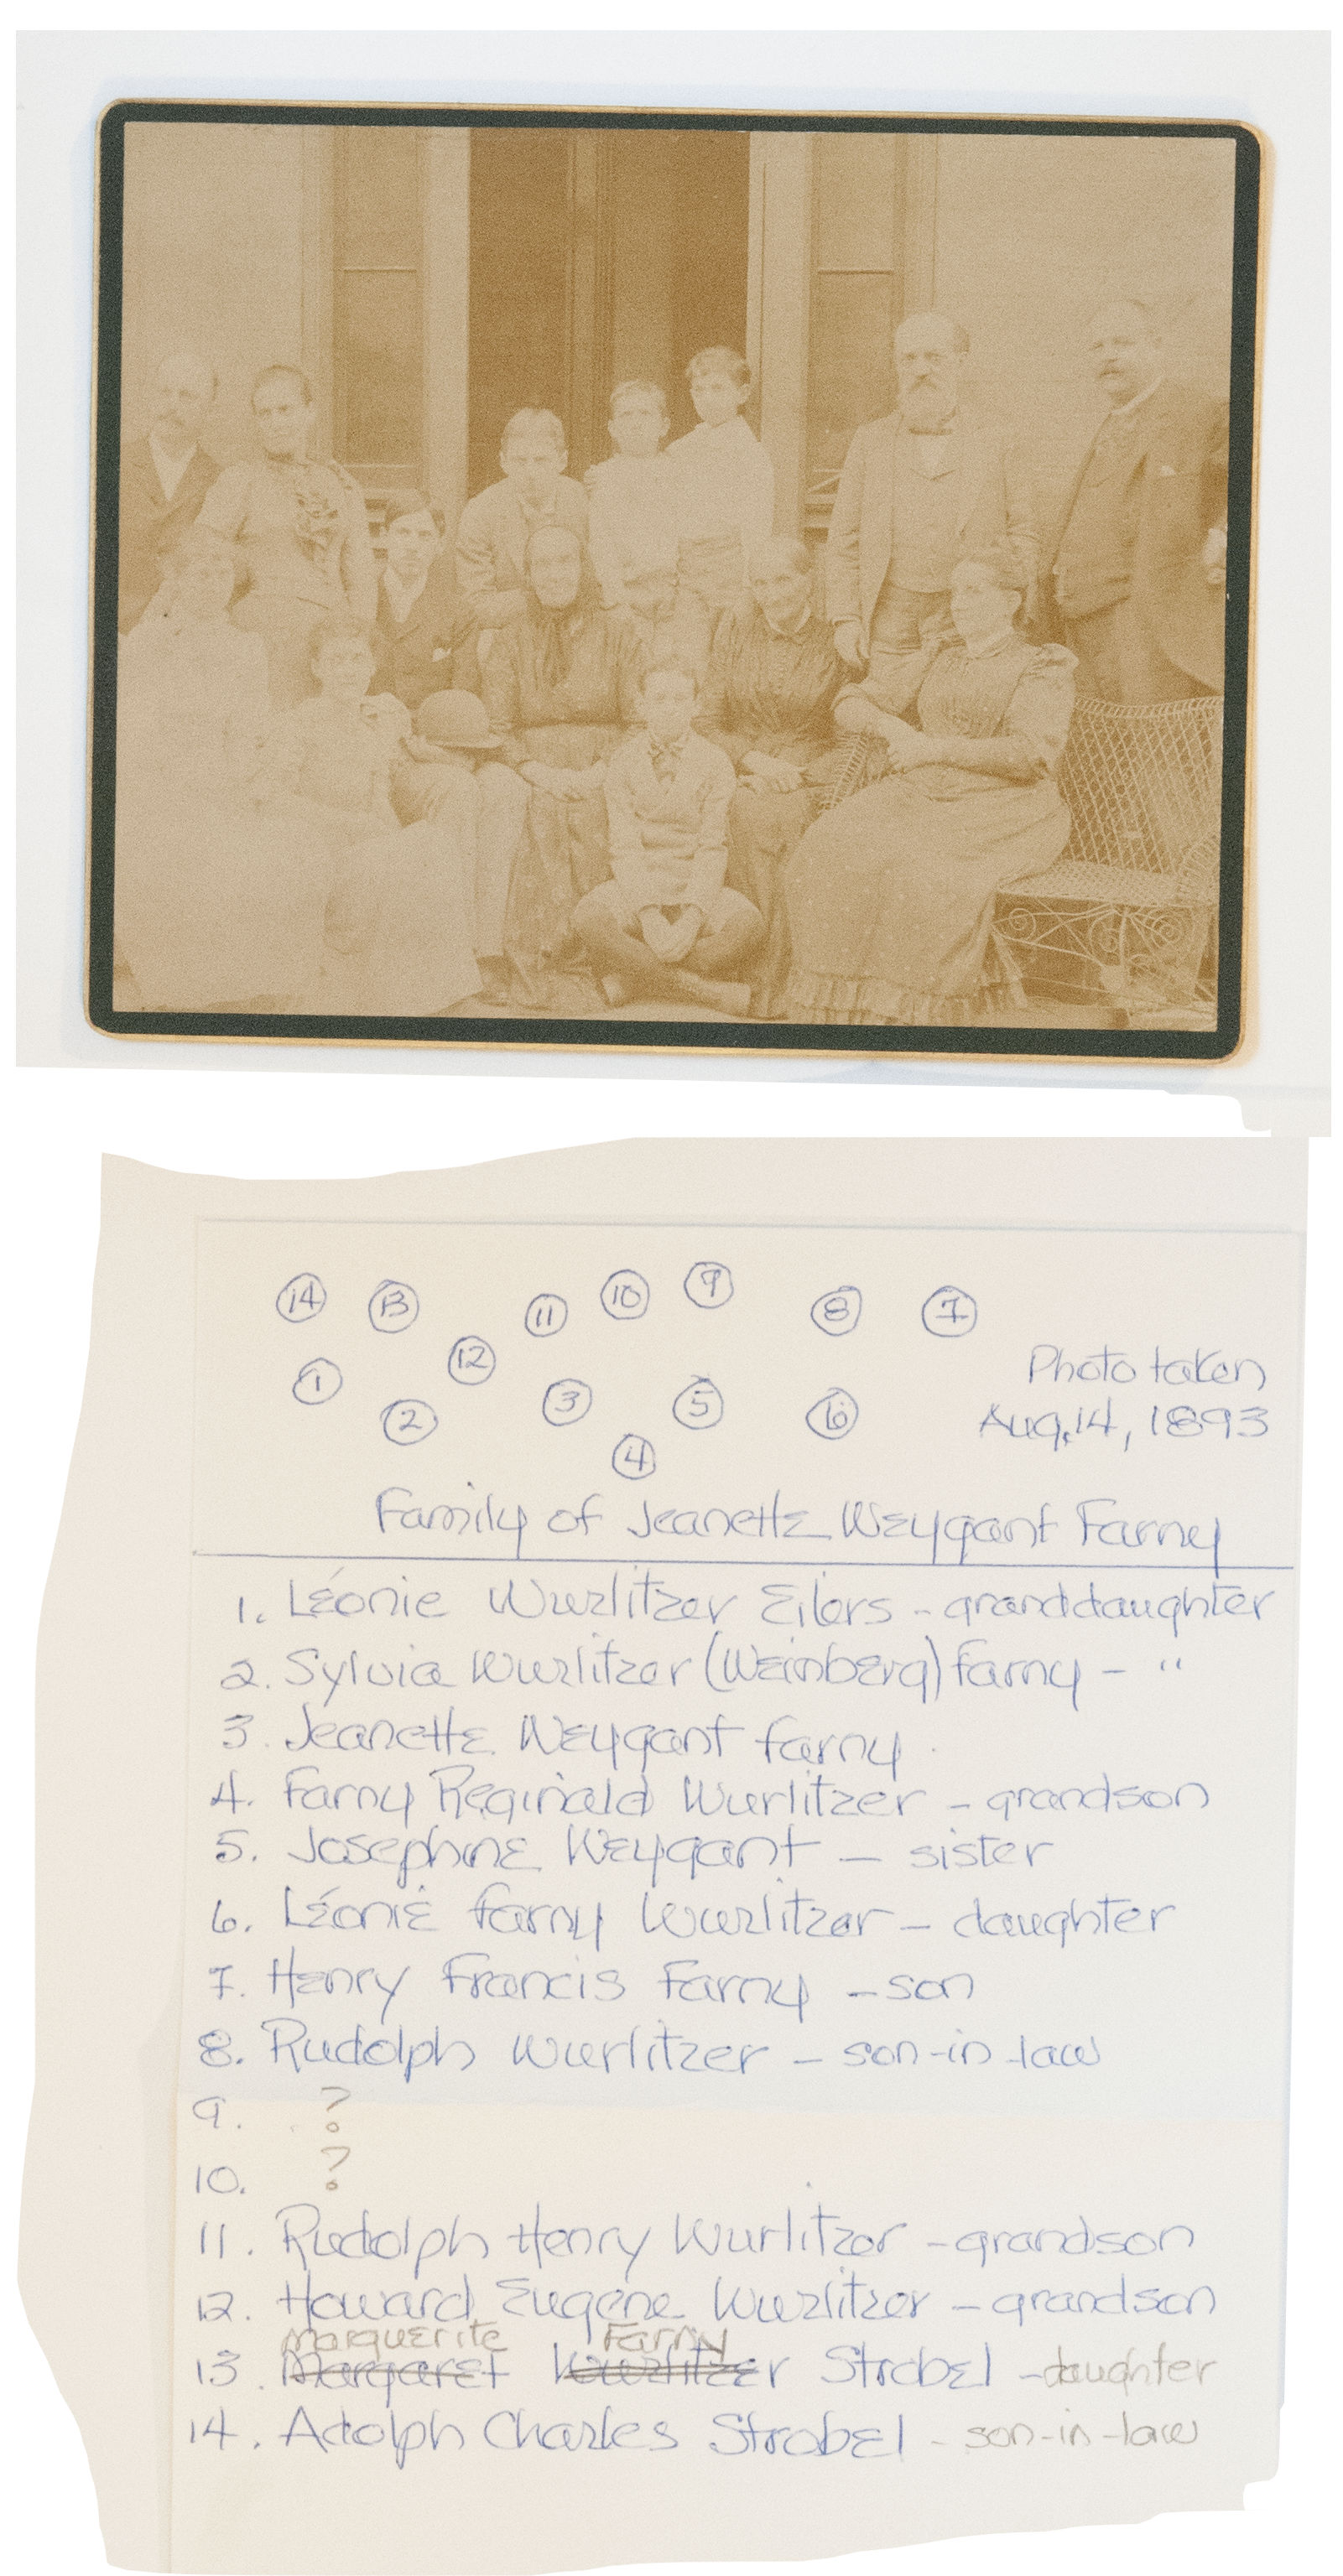 14 13 11 10 9 8 7
12
1
2 3 5 6
4
Photo taken
Aug, 14, 1893
Family of Jeanette Weygant Farny
1. Léonie Wurlitzer Eilers - granddaughter
2. Sylvia Wurlitzer (Weinberg) Farny - "
3. Jeanette Weygant Farny
4. Farny Reginald Wurlitzer - grandson
5. Josephine Weygant - sister
6. Léonie Farny Wurlitzer - daughter
7. Henry Francis Farny - son
8. Rudolph Wurlitzer - son-in-law
9. ?
10. ?
11. Rudolph Henry Wurlitzer - grandson
12. Howard Eugene Wurlitzer - grandson
Marguerite Farny
13. Margaret Wurlitzer Strobel - daughter
14. Adolph Charles Strobel - son-in-law